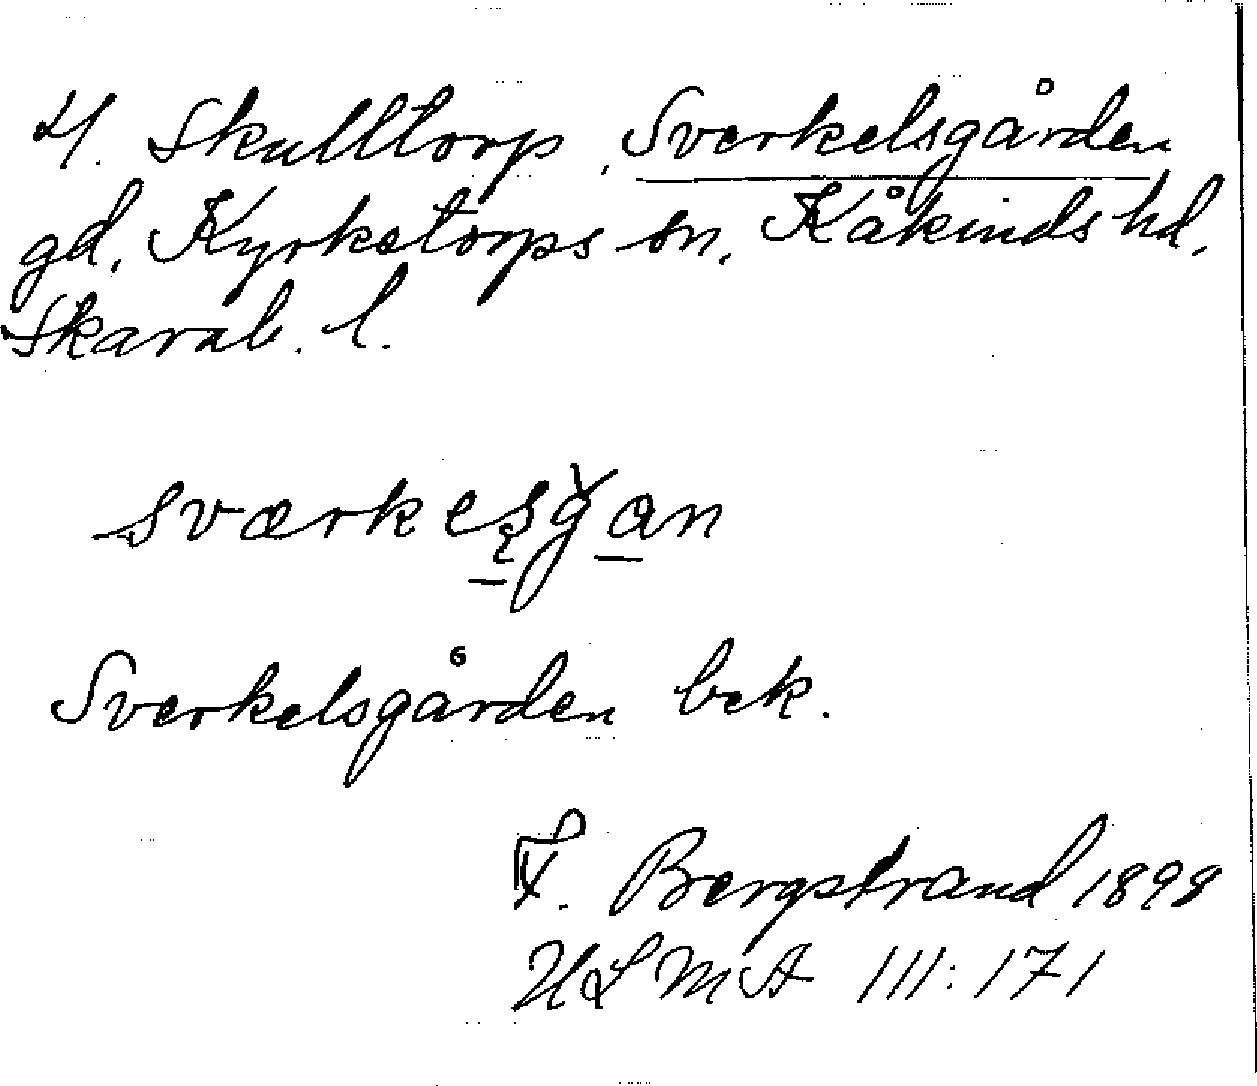 4. Skulltorp, Sverkelsgården
gd, Kyrketorps sn, Kåkinds hd,
Skarab. l.
sværkesgan
Sverkelsgården bek.
F. Bergstrand 1898
ULMA 111:171